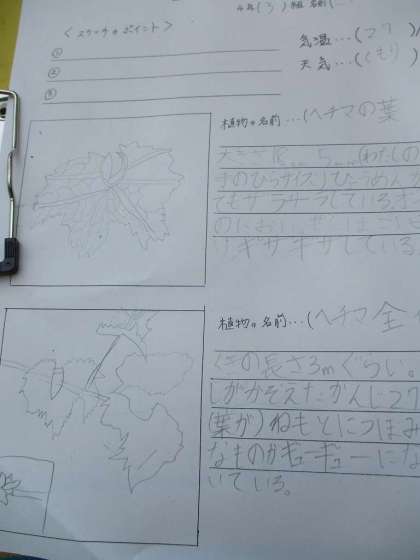 4年(3)組 名前(
<スケッチのポイント>
①
②
③
気温…(27
天気…(くもり)
植物の名前…(ヘチマの葉
大きさ 18cm 5mm (わたしの
手のひらサイズ)ひょうめんが
てもサラサラしている。
のにおい
ギザギザしている
植物の名前…(ヘチマ全
くきの長さ3mぐらい。
しがかぞえたかんじ27
(葉が)ねもとにつぼみ
なものがギューギューにな
いている。